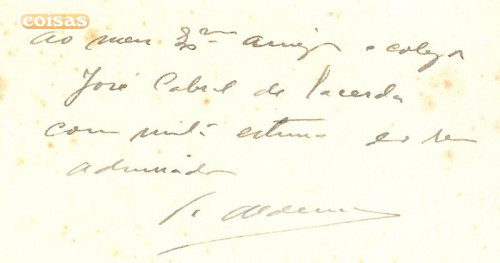 coisas
Ao meu Exmo amigo e colega
José Cabral de Lacerda
com muita estima do seu
admirador